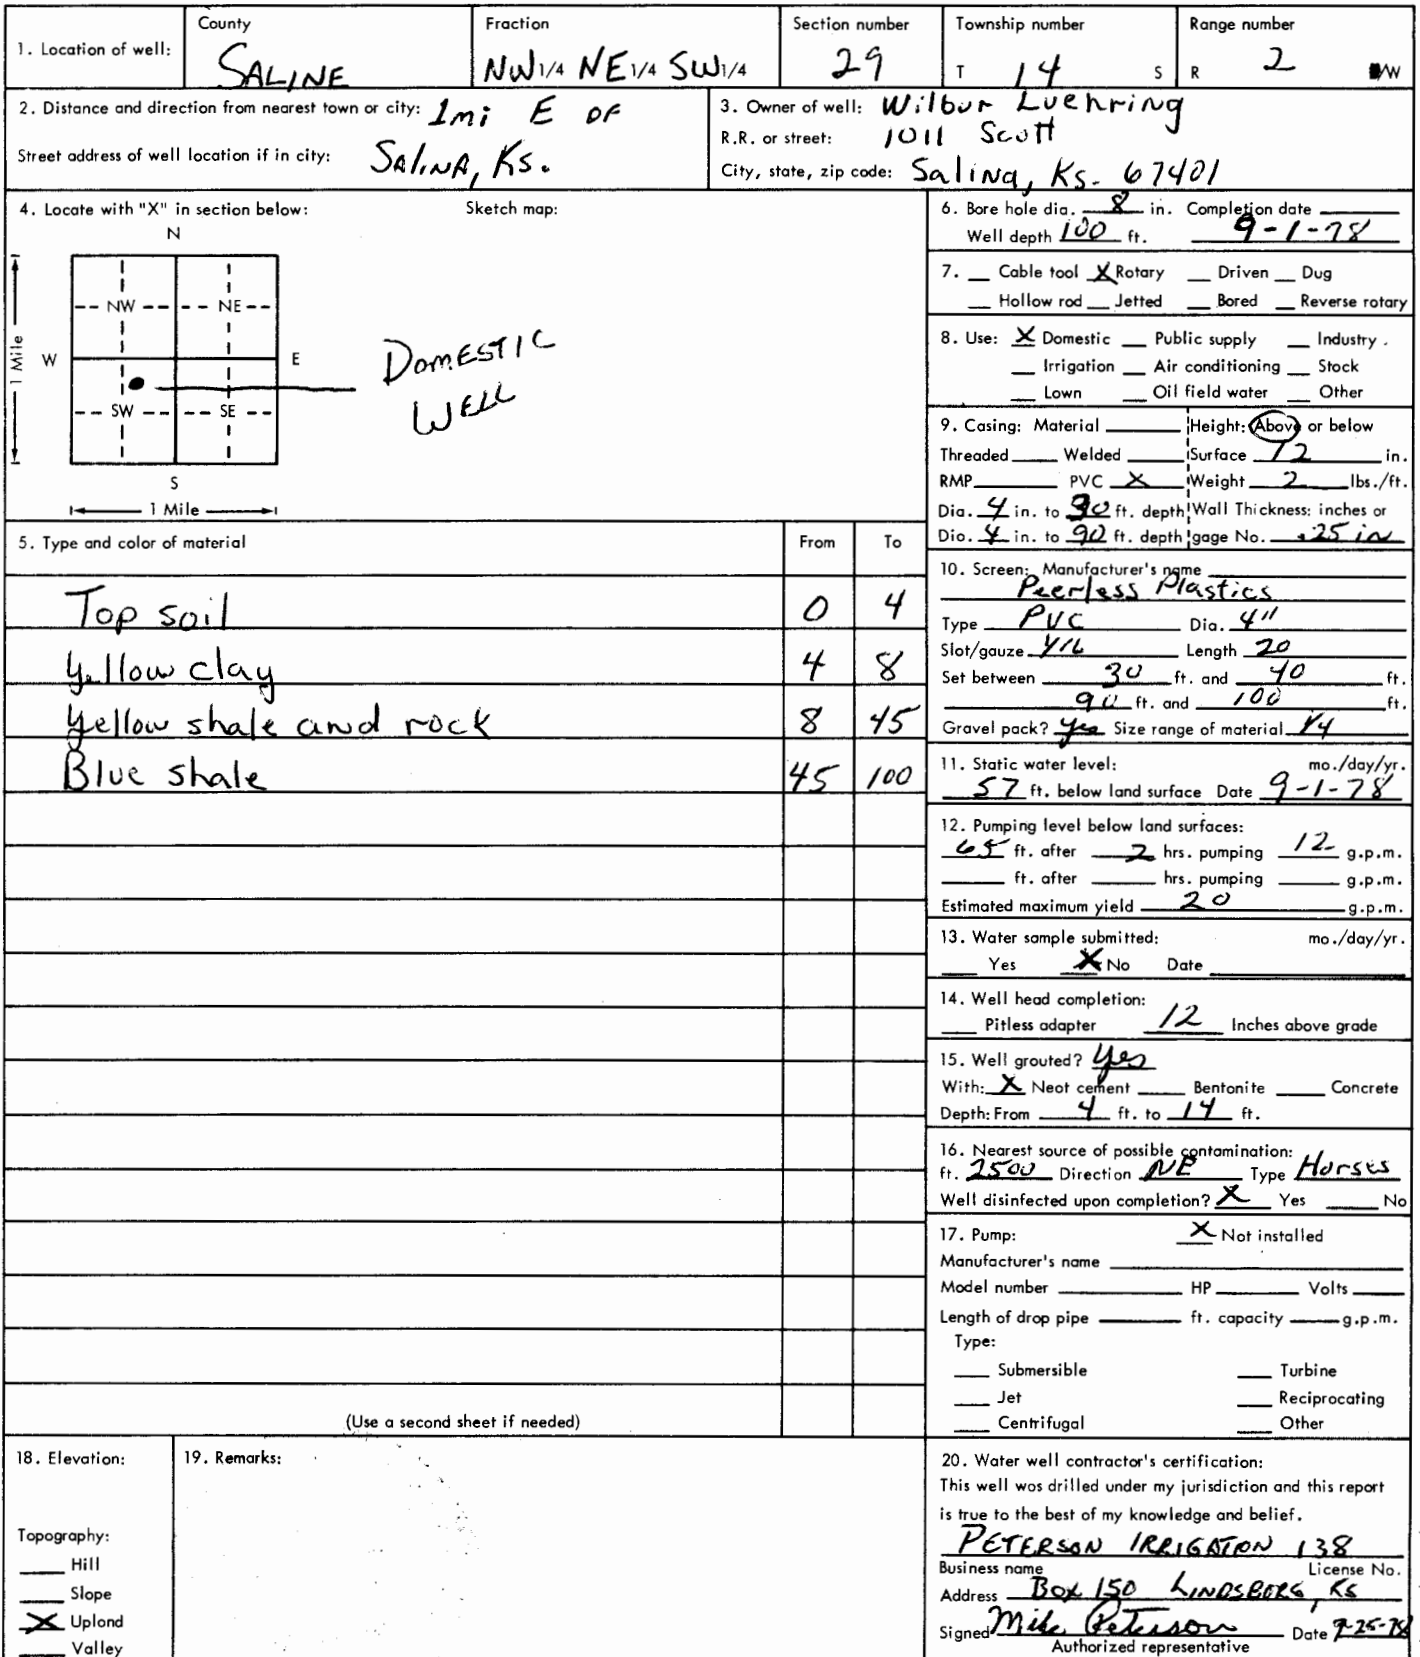 1. Location of well: County SALINE Fraction NW 1/4 NE 1/4 SW 1/4 Section number 29 Township number T 14 S Range number R 2 /W
2. Distance and direction from nearest town or city: 1mi E OF
Street address of well location if in city: SALINA, Ks.
3. Owner of well: Wilbur Luehring
R.R. or street: 1011 Scott
City, state, zip code: Salina, Ks. 67401
4. Locate with "X" in section below: Sketch map:
N
NW NE
W E
1 Mile
SW SE
S
1 Mile
DOMESTIC
WELL
5. Type and color of material From To
Top soil 0 4
Yellow clay 4 8
Yellow shale and rock 8 45
Blue shale 45 100
(Use a second sheet if needed)
6. Bore hole dia. 8 in. Completion date
Well depth 100 ft. 9-1-78
7. Cable tool X Rotary Driven Dug
Hollow rod Jetted Bored Reverse rotary
8. Use: X Domestic Public supply Industry.
Irrigation Air conditioning Stock
Lown Oil field water Other
9. Casing: Material Height: Above or below
Threaded Welded Surface 12 in.
RMP PVC X Weight 2 lbs./ft.
Dia. 4 in. to 30 ft. depth Wall Thickness: inches or
Dio. 4 in. to 90 ft. depth gage No. .25 in
10. Screen: Manufacturer's name
Peerless Plastics
Type PVC Dia. 4"
Slot/gauze 1/16 Length 20
Set between 30 ft. and 40 ft.
90 ft. and 100 ft.
Gravel pack? yes Size range of material 1/4
11. Static water level: mo./day/yr.
57 ft. below land surface Date 9-1-78
12. Pumping level below land surfaces:
65 ft. after 2 hrs. pumping 12 g.p.m.
ft. after hrs. pumping g.p.m.
Estimated maximum yield 20 g.p.m.
13. Water sample submitted: mo./day/yr.
Yes X No Date
14. Well head completion:
Pitless adapter 12 Inches above grade
15. Well grouted? Yes
With: X Neot cement Bentonite Concrete
Depth: From 4 ft. to 14 ft.
16. Nearest source of possible contamination:
ft. 2500 Direction NE Type Horses
Well disinfected upon completion? X Yes No
17. Pump: X Not installed
Manufacturer's name
Model number HP Volts
Length of drop pipe ft. capacity g.p.m.
Type:
Submersible Turbine
Jet Reciprocating
Centrifugal Other
18. Elevation:
Topography:
Hill
Slope
X Uplond
Valley
19. Remarks:
20. Water well contractor's certification:
This well wos drilled under my jurisdiction and this report
is true to the best of my knowledge and belief.
PETERSON IRRIGATION 138
Business name License No.
Address BOX 150 LINDSBORG, KS
Signed Mike Peterson Date 9-25-78
Authorized representative